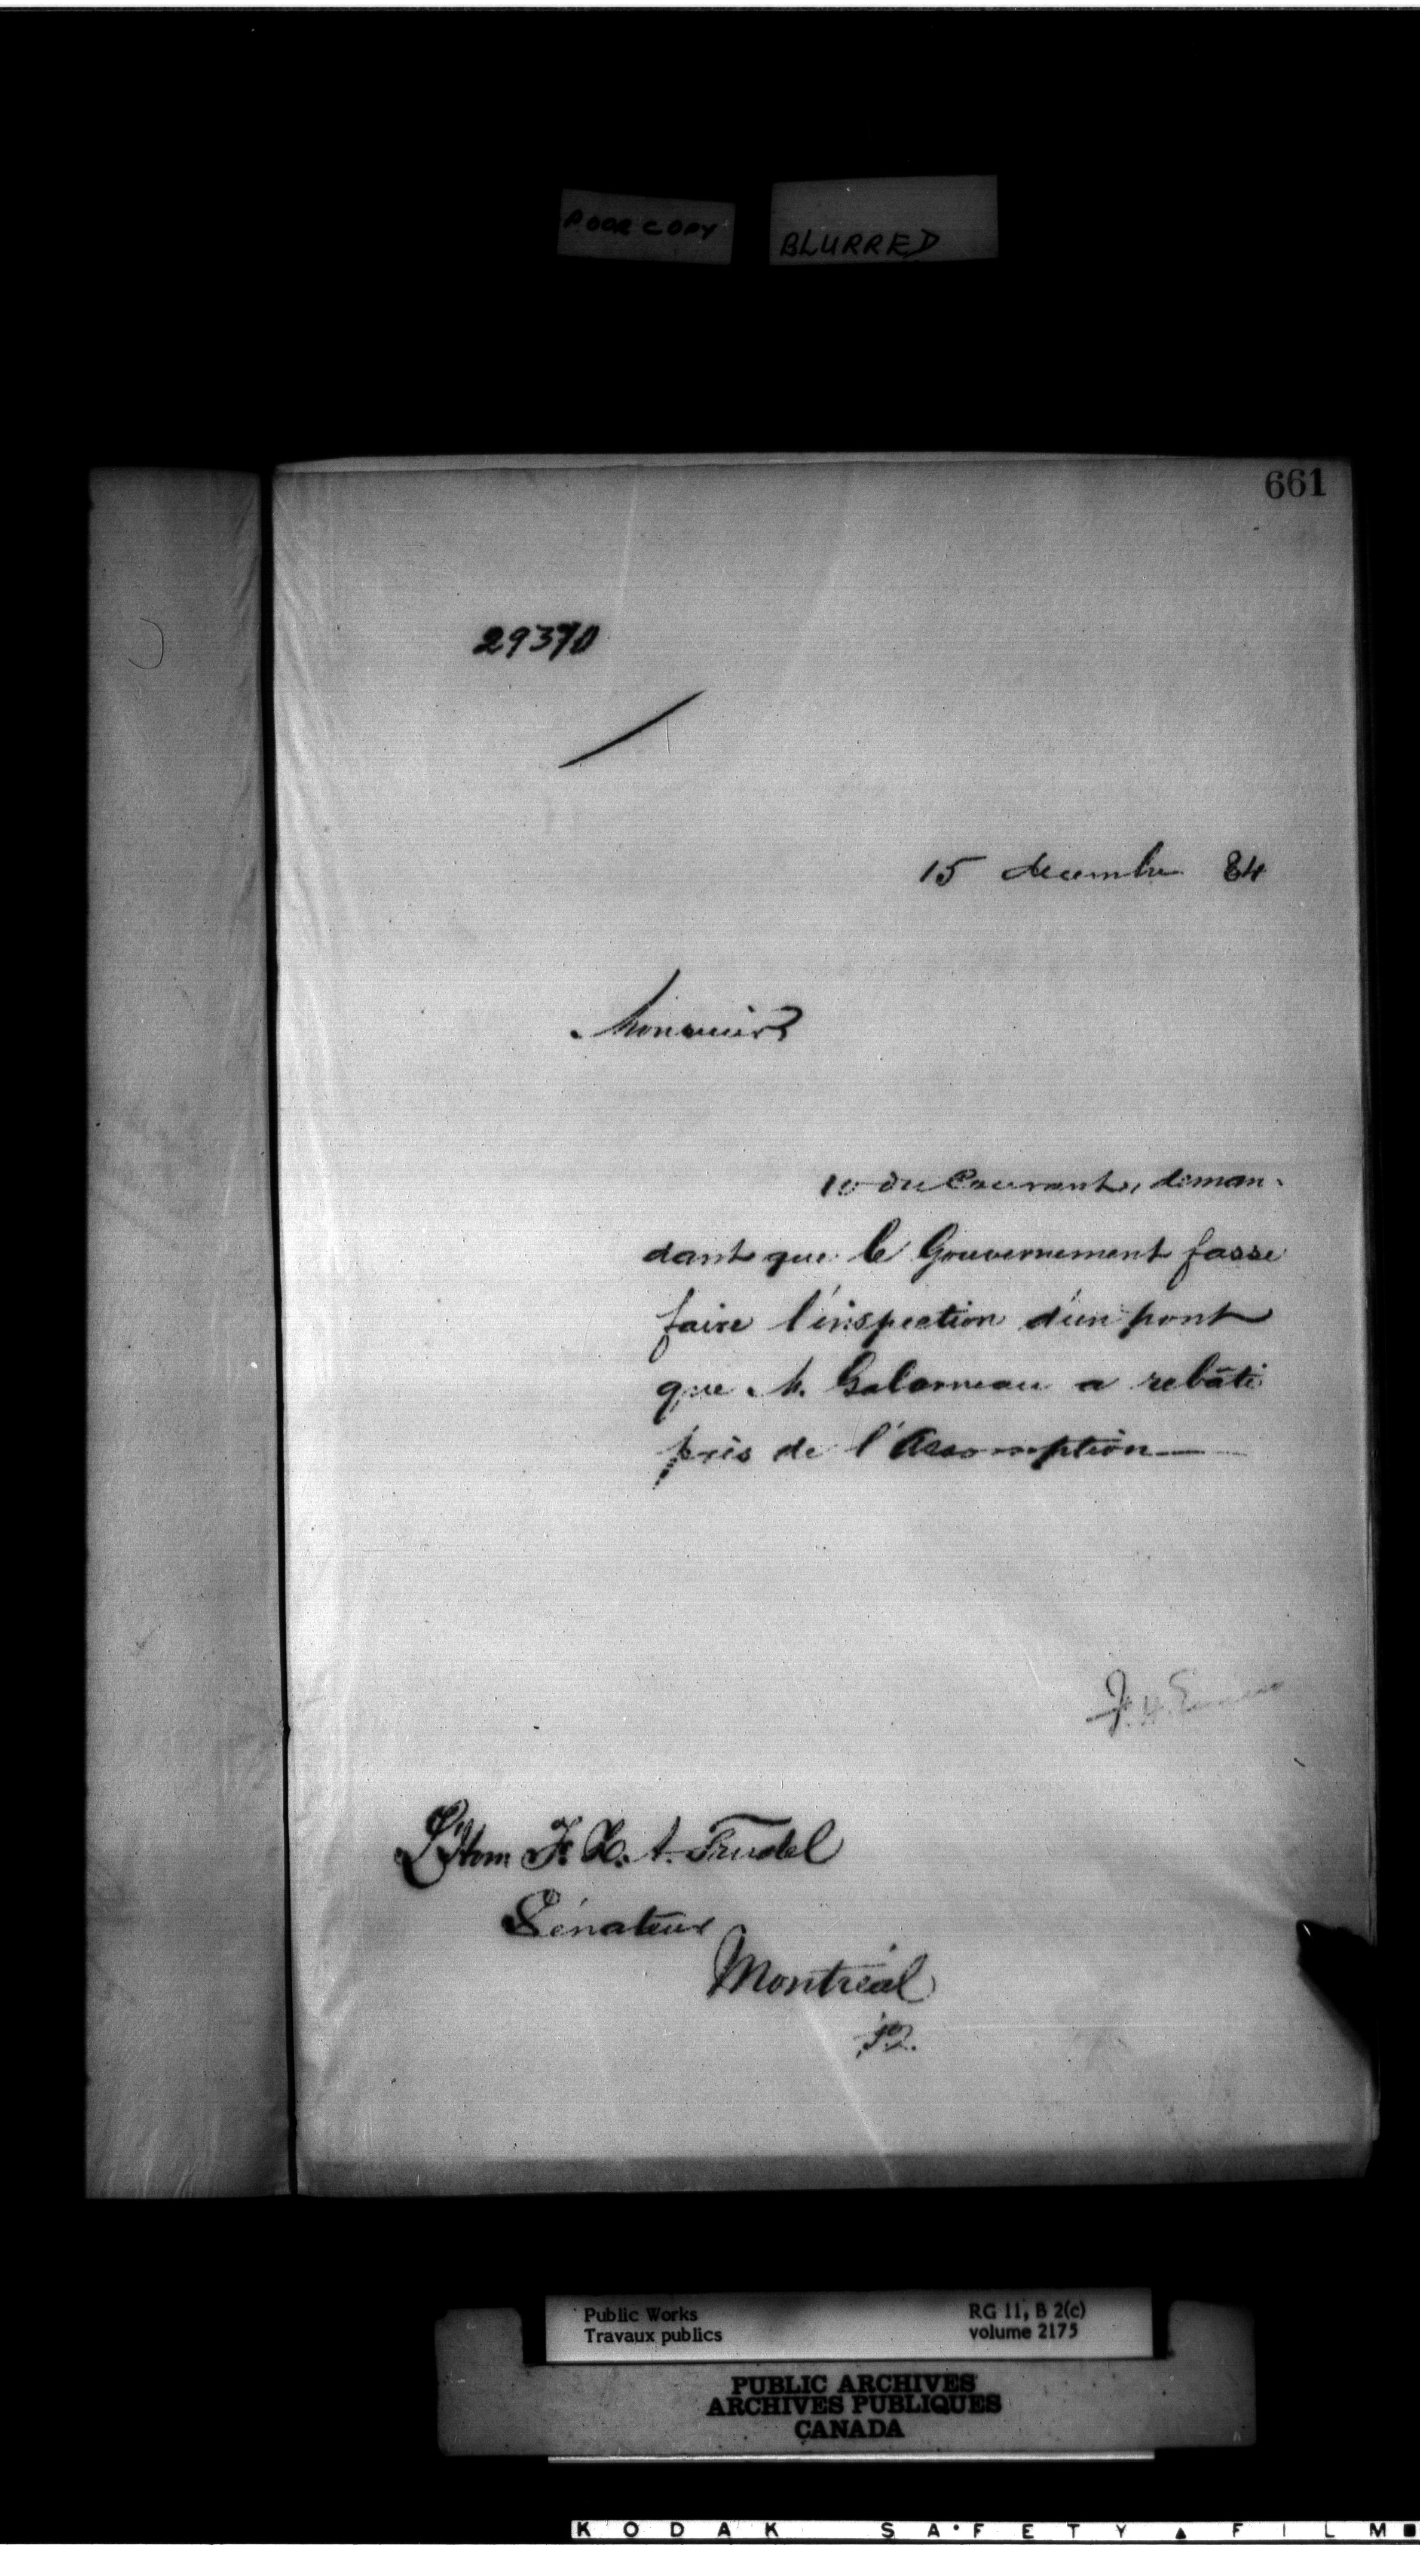 POOR COPY
BLURRED
661
29370
15 decembre 84
Monsieur
10 du Courant, deman-
dant que le Gouvernement fasse
faire l'inspection d'un pont
que M. Galarneau a rebâti
près de l'Assomption
F. H.
L'Hon F. X. A. Trudel
Sénateur
Montréal
P.Q.
Public Works
Travaux publics
RG 11, B 2(c)
volume 2175
PUBLIC ARCHIVES
ARCHIVES PUBLIQUES
CANADA
KODAK SAFETY FILM